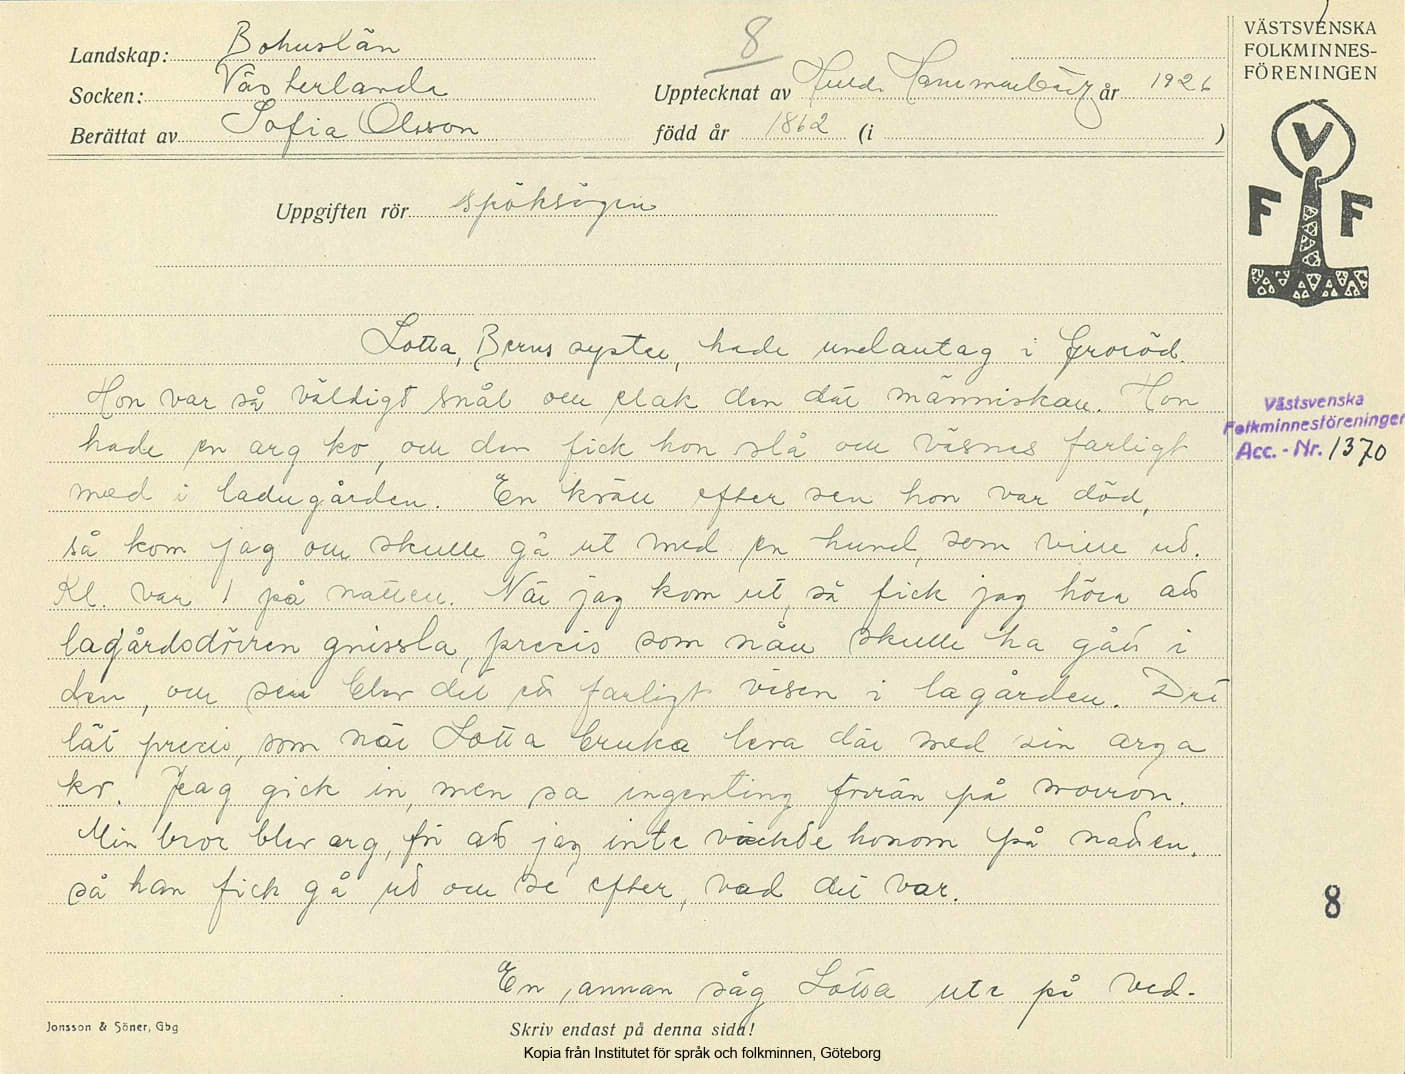 8
VÄSTSVENSKA
FOLKMINNES-
FÖRENINGEN
Landskap: Bohuslän
Socken: Västerlanda
Upptecknat av Huld. Hammarbäck år 1926
Berättat av Sofia Olsson
född år 1862 (i )
V
F F
Uppgiften rör spöksägen
Lotta, Berns syster, hade undantag i Groröd.
Hon var så väldigt snål ou elak den där människan. Hon
hade en arg ko, ou den fick hon slå ou väsnes farligt
med i ladugården. En kväll efter sen hon var död,
så kom jag ou skulle gå ut med en hund, som ville ud.
Kl. var 1 på natten. När jag kom ut, så fick jag höra att
lagårdsdörren gnissla, precis som nån skulle ha gått i
den, ou sen blev det ett farligtväsen i lagården. Det
lät precis, som när Lotta bruka leva där med sin arga
ko. Jeag gick in, men sa ingenting förrän på morron.
Min bror blev arg, för att jag inte väckte honom på natten,
så han fick gå ud ou se efter, vad det var.
En annan såg Lotta ute på ved-
Västsvenska
Folkminnesföreningen
Acc.-Nr. 1370
8
Jonsson & Söner, Gbg
Skriv endast på denna sida!
Kopia från Institutet för språk och folkminnen, Göteborg